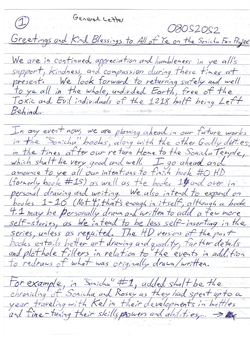 General Letter
1
08052052
Greetings and Kind Blessings to All of Ye on the Sonichu Fan
We are in continued appreciation and humbleness in ye all's
support, kindness, and compassion during these times at
present. We look forward to returning safely and well
to ye all in the whole, undivided Earth, free of the
Toxic and Evil individuals of the 1218 half being Left
Behind.
In any event now, we are planning ahead in our future works
in the "Sonichu" books, along with the other Godly duties,
in the times after our return Home to the Sonichu Temple,
which shall be very good and well. I go ahead and
announce to ye all our intentions to finish book #0 HD
(formerly book #15) as well as the books and over in
personal drawing and writing. We also intend to expand on
books 1-10 (Not 4; that's enough in itself, although a book
4.1 may be personally drawn and written to add a few more
self-stories, as we intend to be less self-inserting in the
series, unless as required. The HD versions of the past
books entails better art drawing and quality, further details
and plothole fillers in relation to the events in addition
to redraws of what was originally drawn/written.
For example, in "Sonichu" #1, added shall be the
chronicling of Sonichu and Rosey as they had spent up to a
year traveling with Kel in their developments in battles
and fine-tuning their skills, powers and abilities.